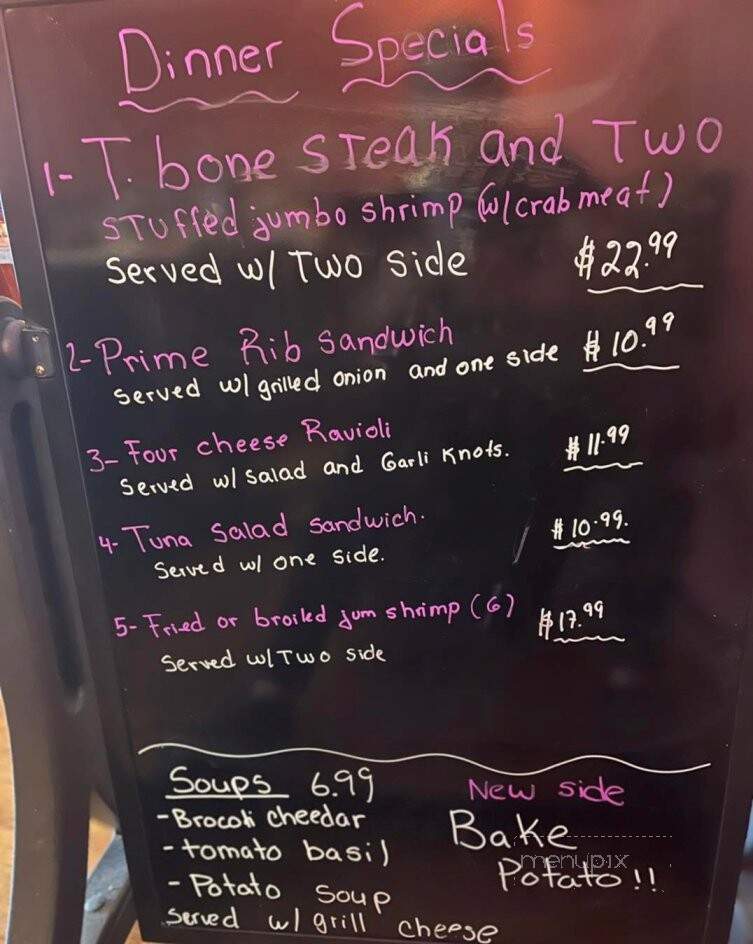 Dinner Specials
1- T. bone STEAK and TWO
STUffed jumbo shrimp (w/crab meat)
Served w/ TWO side $22.99
2- Prime Rib Sandwich
Served w/ grilled onion and one side $10.99
3- Four cheese Ravioli
Served w/ Salad and Garli Knots. $11.99
4- Tuna Salad Sandwich.
Served w/ one side. $10.99.
5- Fried or broiled jum shrimp (6) $17.99
Served w/ Two side
Soups 6.99
- Brocoli cheedar
- tomato basil
- Potato Soup
Served w/ grill cheese
New side
Bake
Potato!!
menupix